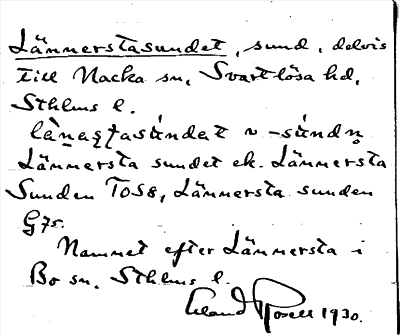 Lännerstasundet, sund, delvis
till Nacka sn, Svartlösa hd,
Sthlms l.
Lännersta sundet ek. Lännersta
Sunden TOS8, Lännersta sunden
G75.
Namnet efter Lännersta i
Bo sn. Sthlms l.
Erland Rosell 1930.